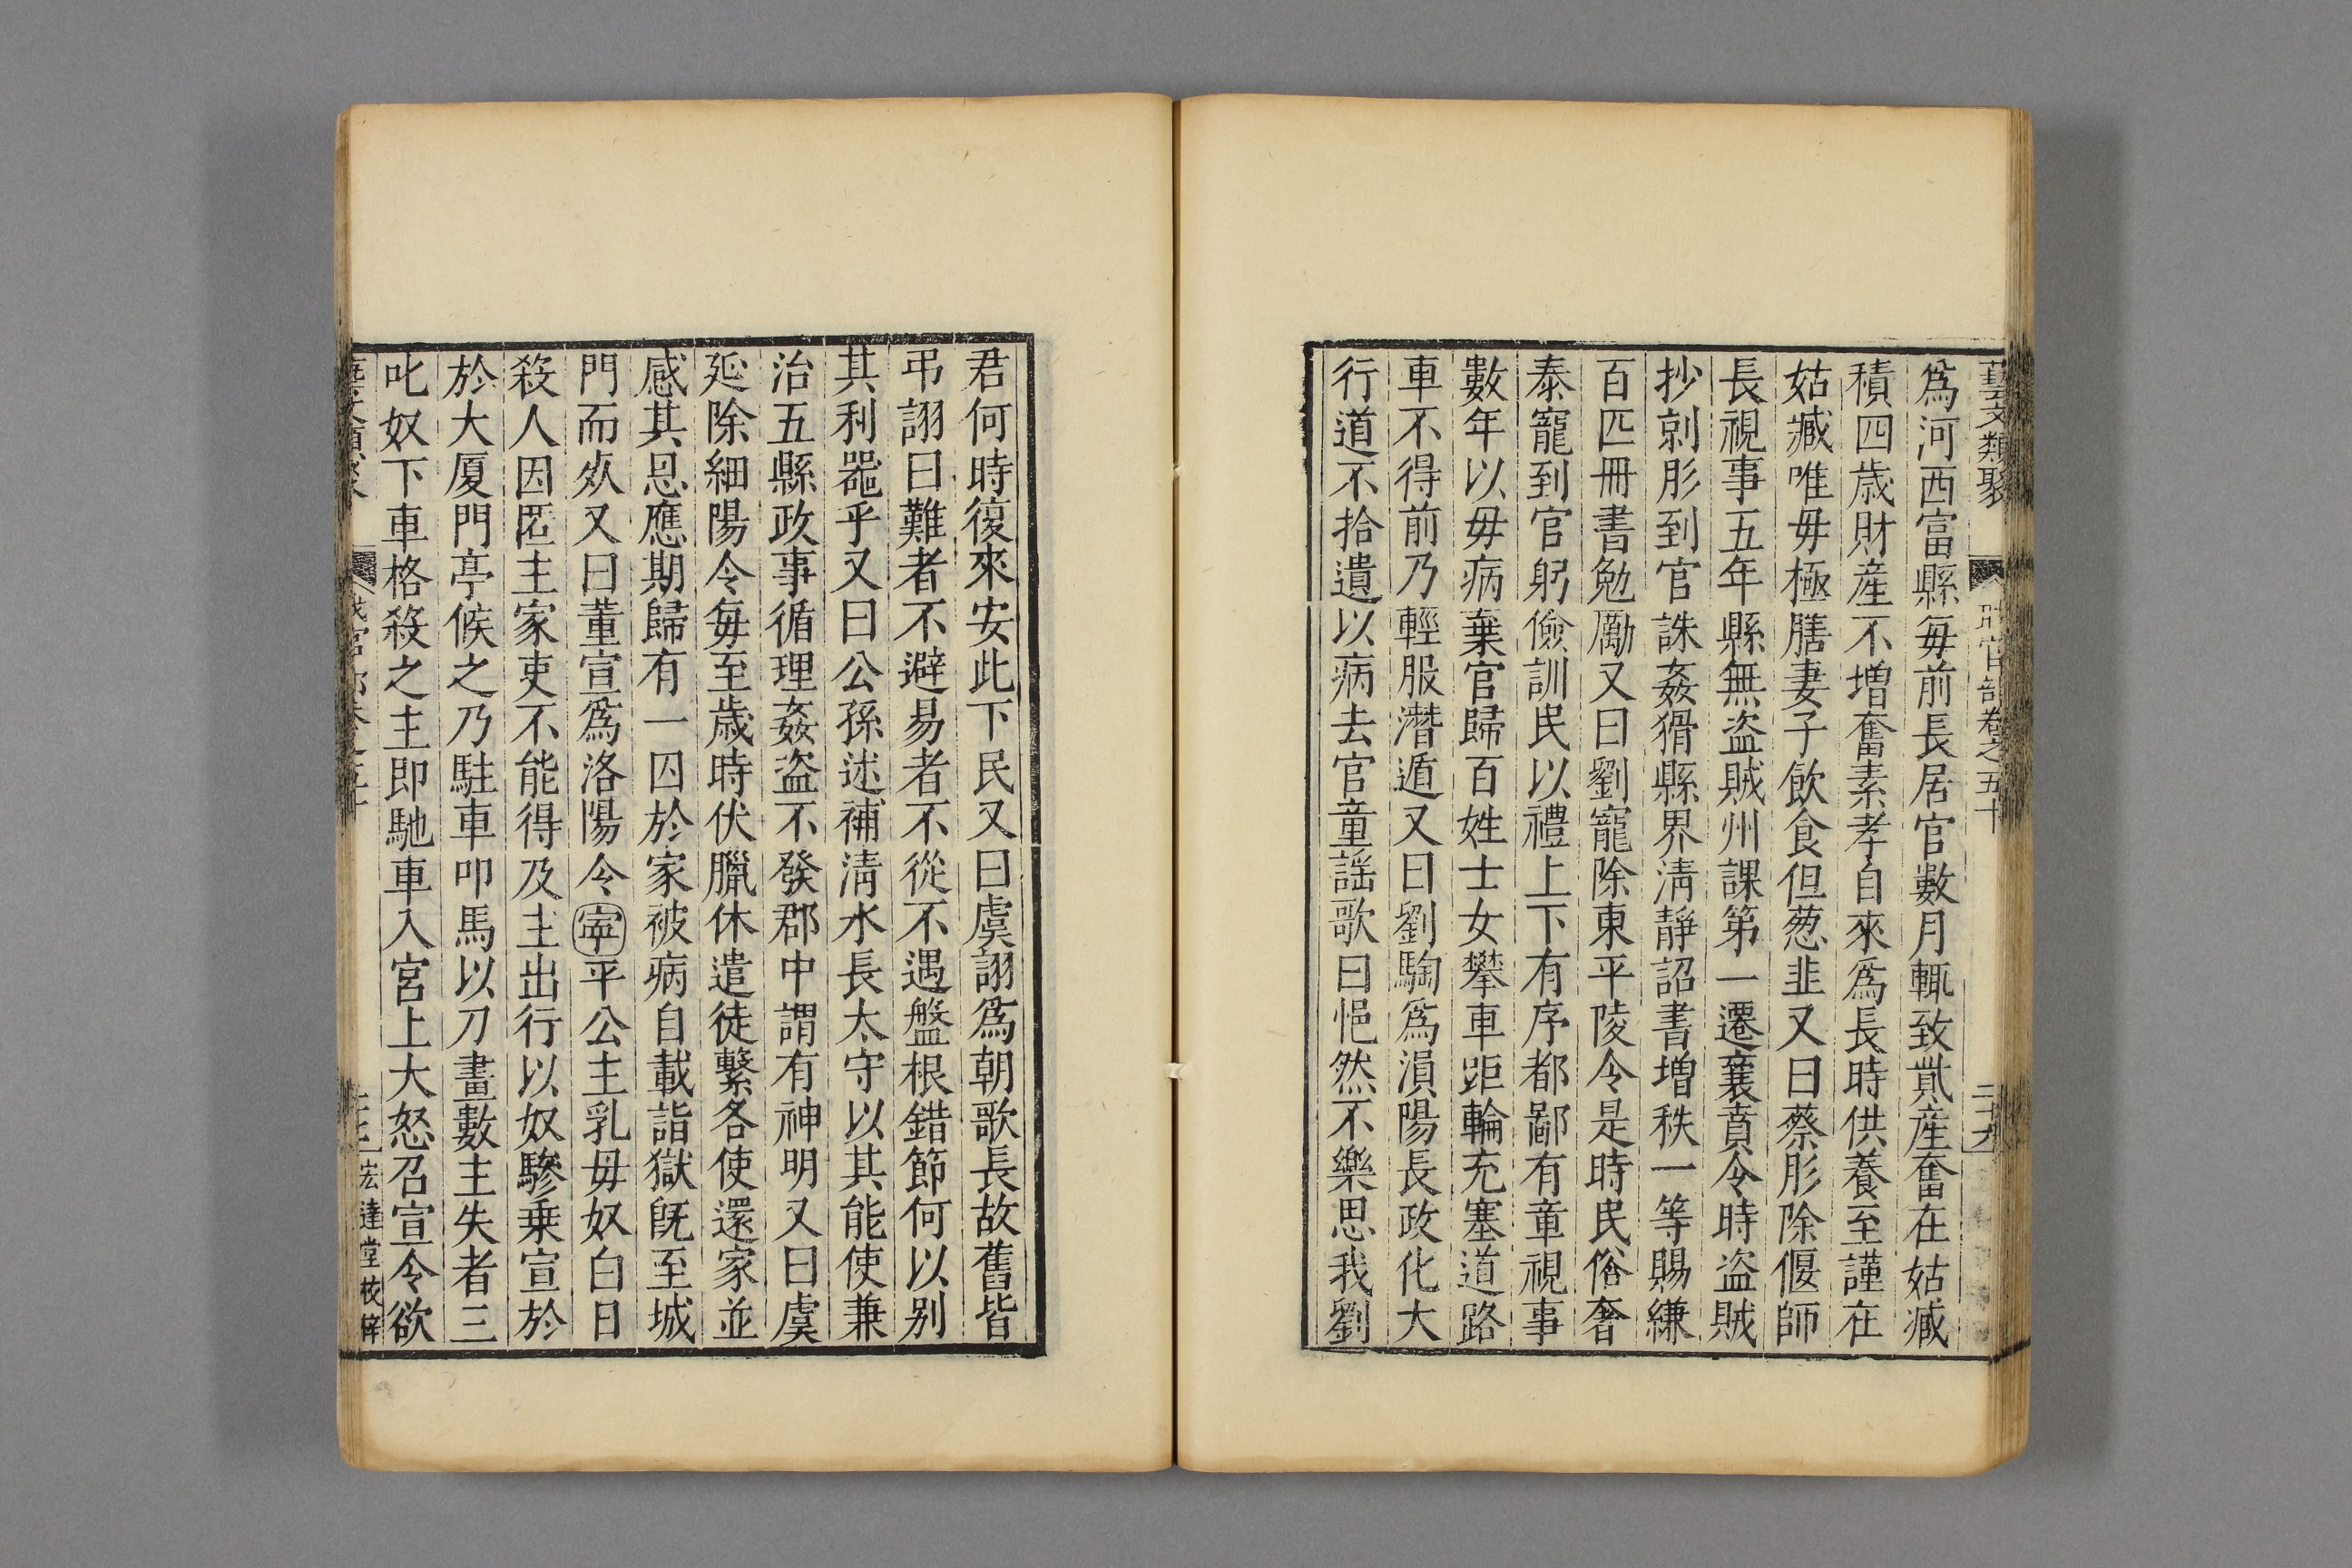 藝文類聚 職官部卷之五十 二十六
爲河西富縣毎前長居官數月輒致貲産奮在姑臧
積四歳財産不増奮素孝自來爲長時供養至謹在
姑臧唯毋極膳妻子飲食但葱韭又曰蔡肜除偃師
長視事五年縣無盗賊州課第一遷襄賁令時盗賊
抄剠肜到官誅姦猾縣界淸靜詔書増秩一等賜縑
百匹冊書勉勵又曰劉寵除東平陵令是時民俗奢
泰寵到官躬儉訓民以禮上下有序都鄙有章視事
數年以毋病棄官歸百姓士女攀車距輪充塞道路
車不得前乃輕服潛遁又曰劉騊爲湨陽長政化大
行道不拾遺以病去官童謡歌曰悒然不樂思我劉
君何時復來安此下民又曰虞詡爲朝歌長故舊皆
弔詡曰難者不避易者不從不遇盤根錯節何以别
其利噐乎又曰公孫述補淸水長太守以其能使兼
治五縣政事循理姦盗不發郡中謂有神明又曰虞
延除細陽令毎至歳時伏臘休遣徒繫各使還家並
感其恩應期歸有一囚於家被病自載詣獄旣至城
門而死又曰董宣爲洛陽令寧平公主乳毋奴白日
殺人因匿主家吏不能得及主出行以奴驂乗宣於
於大厦門亭候之乃駐車叩馬以刀畫數主失者三
叱奴下車格殺之主即馳車入宮上大怒召宣令欲
宏達堂校梓